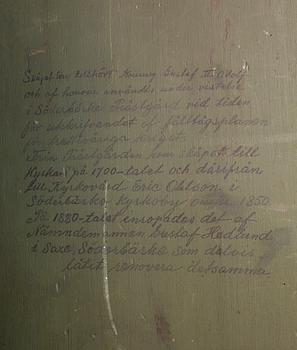 Skåpet har tillhört Konung Gustaf II Adolf
och af honom användts under vistelse
i Söderbärke Prästgård vid tiden
för utskrifvandet af fälttågsplanen
för trettioåriga kriget.
Från Prästgården kom skåpet till
Kyrkan på 1700-talet och därifrån
till Kyrkovärd Eric Olsson i
Söderbärke Kyrkoby omkr. 1850.
På 1880-talet inropades det af
Nämndemannen Gustaf Hedlund
i Saxe, Söderbärke som delvis
låtit renovera detsamma